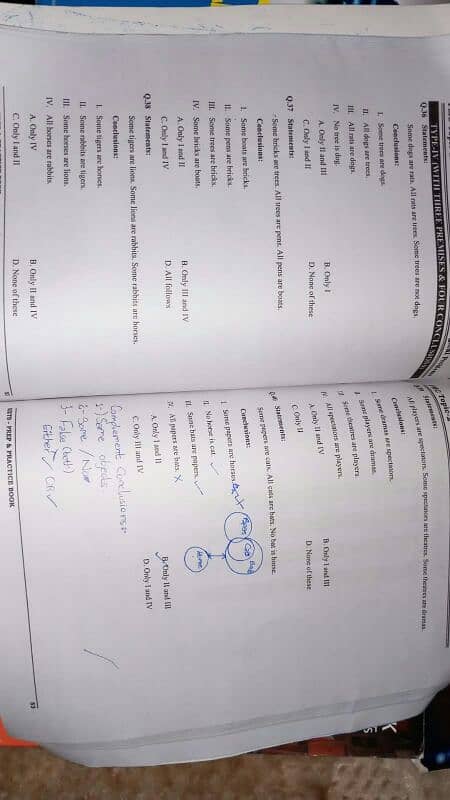 TYPE-IV (WITH THREE PREMISES & FOUR CONCLUSIONS
Q.36 Statements:
Some dogs are rats. All rats are trees. Some trees are not dogs.
Conclusions:
I. Some trees are dogs.
II. All dogs are trees.
III. All rats are dogs.
IV. No tree is dog.
A. Only II and III B. Only I
C. Only I and II D. None of these
Q.37 Statements:
Some bricks are trees. All trees are pens. All pens are boats.
Conclusions:
I. Some boats are bricks.
II. Some pens are bricks.
III. Some trees are bricks.
IV. Some bricks are boats.
A. Only I and II B. Only III and IV
C. Only I and IV D. All follows
Q.38 Statements:
Some tigers are lions. Some lions are rabbits. Some rabbits are horses.
Conclusions:
I. Some tigers are horses.
II. Some rabbits are tigers.
III. Some horses are lions.
IV. All horses are rabbits.
A. Only IV B. Only II and IV
C. Only I and II D. None of these
Statements:
All players are spectators. Some spectators are theatres. Some theatres are dramas.
Conclusions:
I. Some dramas are spectators.
Some players are dramas.
Some theatres are players
IV. All spectators are players.
A. Only I and IV B. Only I and III
C. Only II D. None of these
Statements:
Some papers are cats. All cats are bats. No bat is horse.
Conclusions:
I. Some papers are horses
II. No horse is cat.
III. Some bats are papers.
IV. All papers are bats. X
A. Only I and II B. Only II and III
C. Only III and IV D. Only I and IV
Papers
Cats
Bats
Horse
Complement Conclusions:
1-) Same objects
2- Some / No
3- False (both)
Either / OR
GETS - PREP & PRACTICE BOOK 53